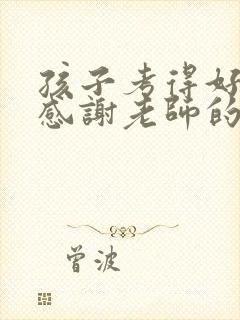 孩子考得好
感謝老師的
曾波